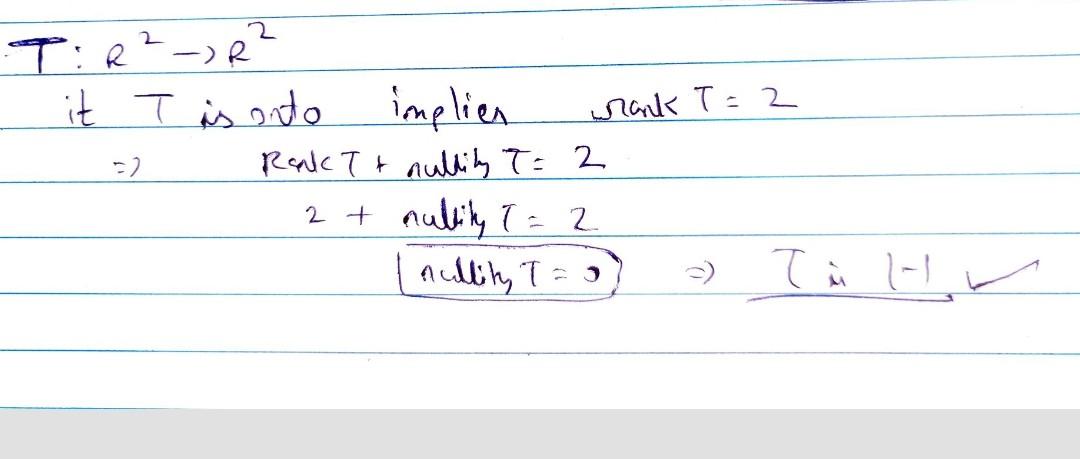 T: R² → R²
if T is onto implies rank T = 2
⇒ Rank T + nullity T = 2
2 + nullity T = 2
nullity T = 0 ⇒ T is 1-1 ✓